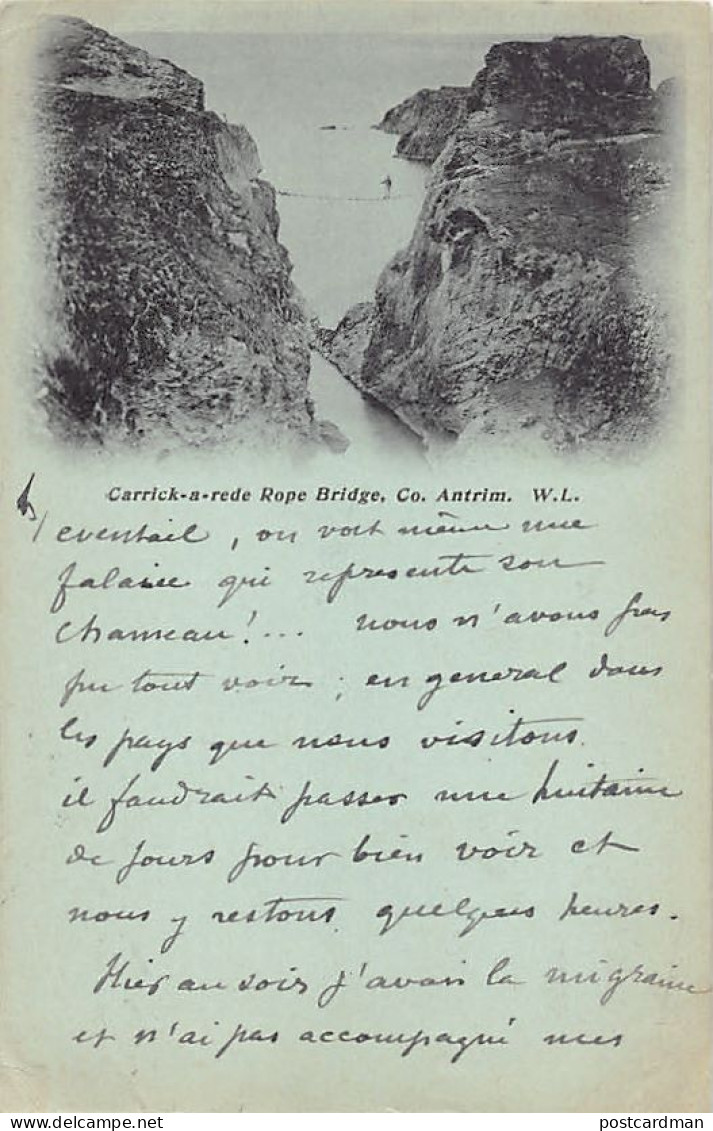 Carrick-a-rede Rope Bridge, Co. Antrim. W.L.
eventail, on voit même une
falaise qui represente son
Chameau!... nous n'avons pas
pu tout voir; en general dans
les pays que nous visitons
il faudrait passer une huitaine
de jours pour bien voir et
nous y restons quelques heures.
Hier au soir j'avais la migraine
et n'ai pas accompagné mes
postcardman